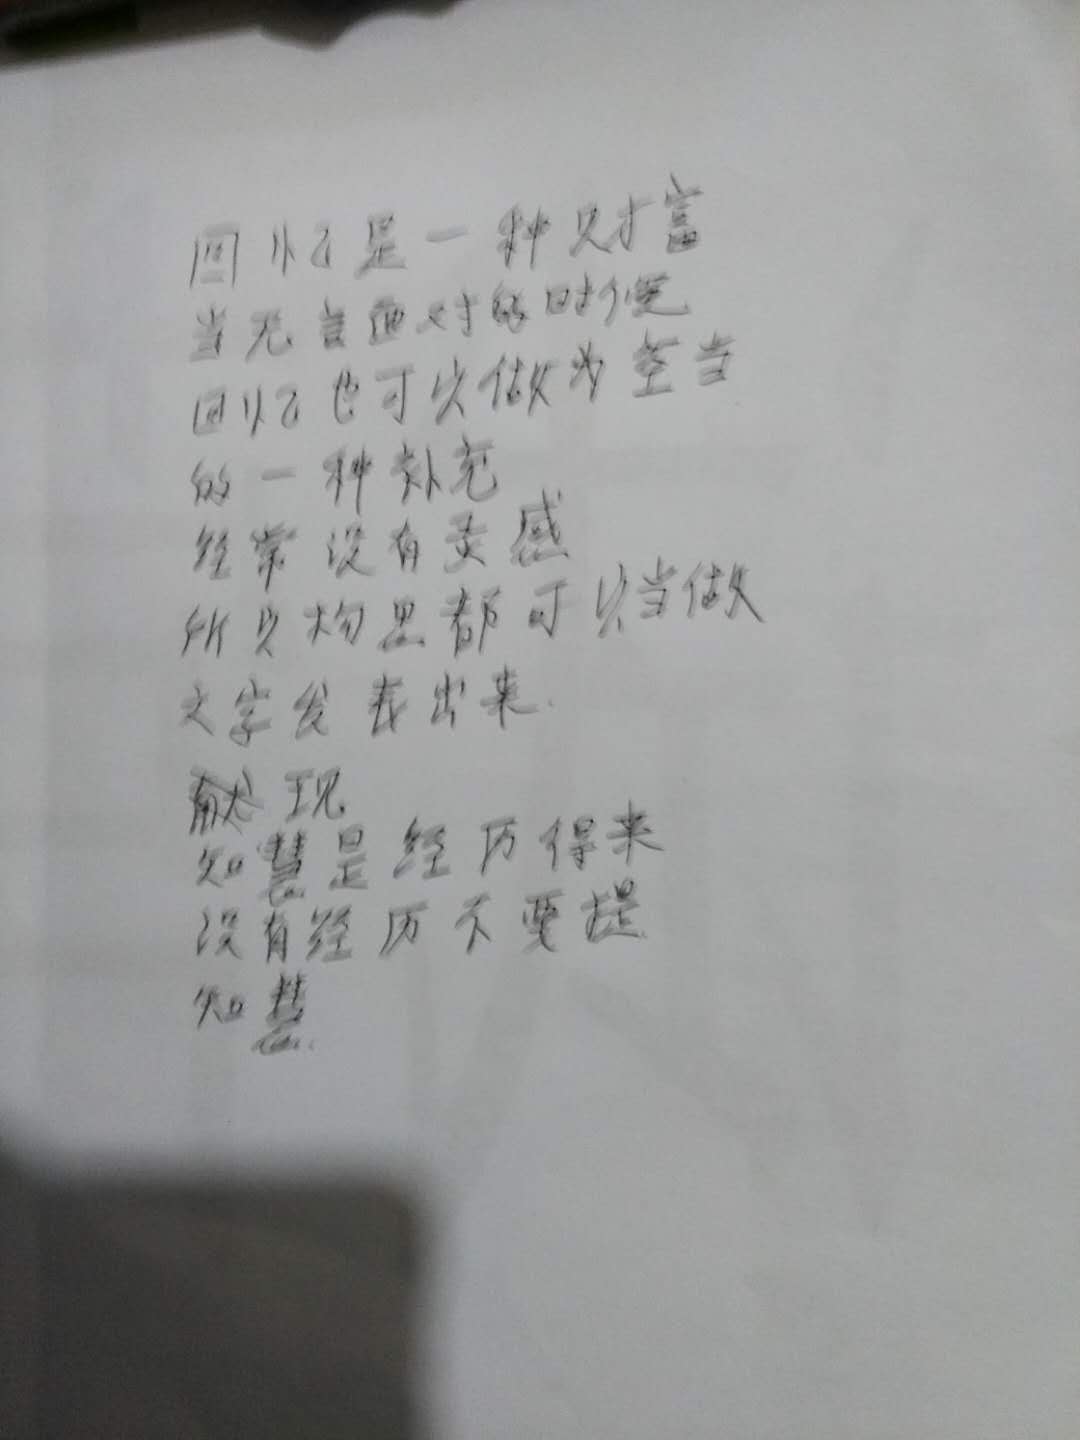 回忆是一种财富
当无言面对的时候
回忆也可以做为空当
的一种补充
经常没有灵感
所以构思都可以当做
文字发表出来.
献现
知慧是经历得来
没有经历不要提
知慧.